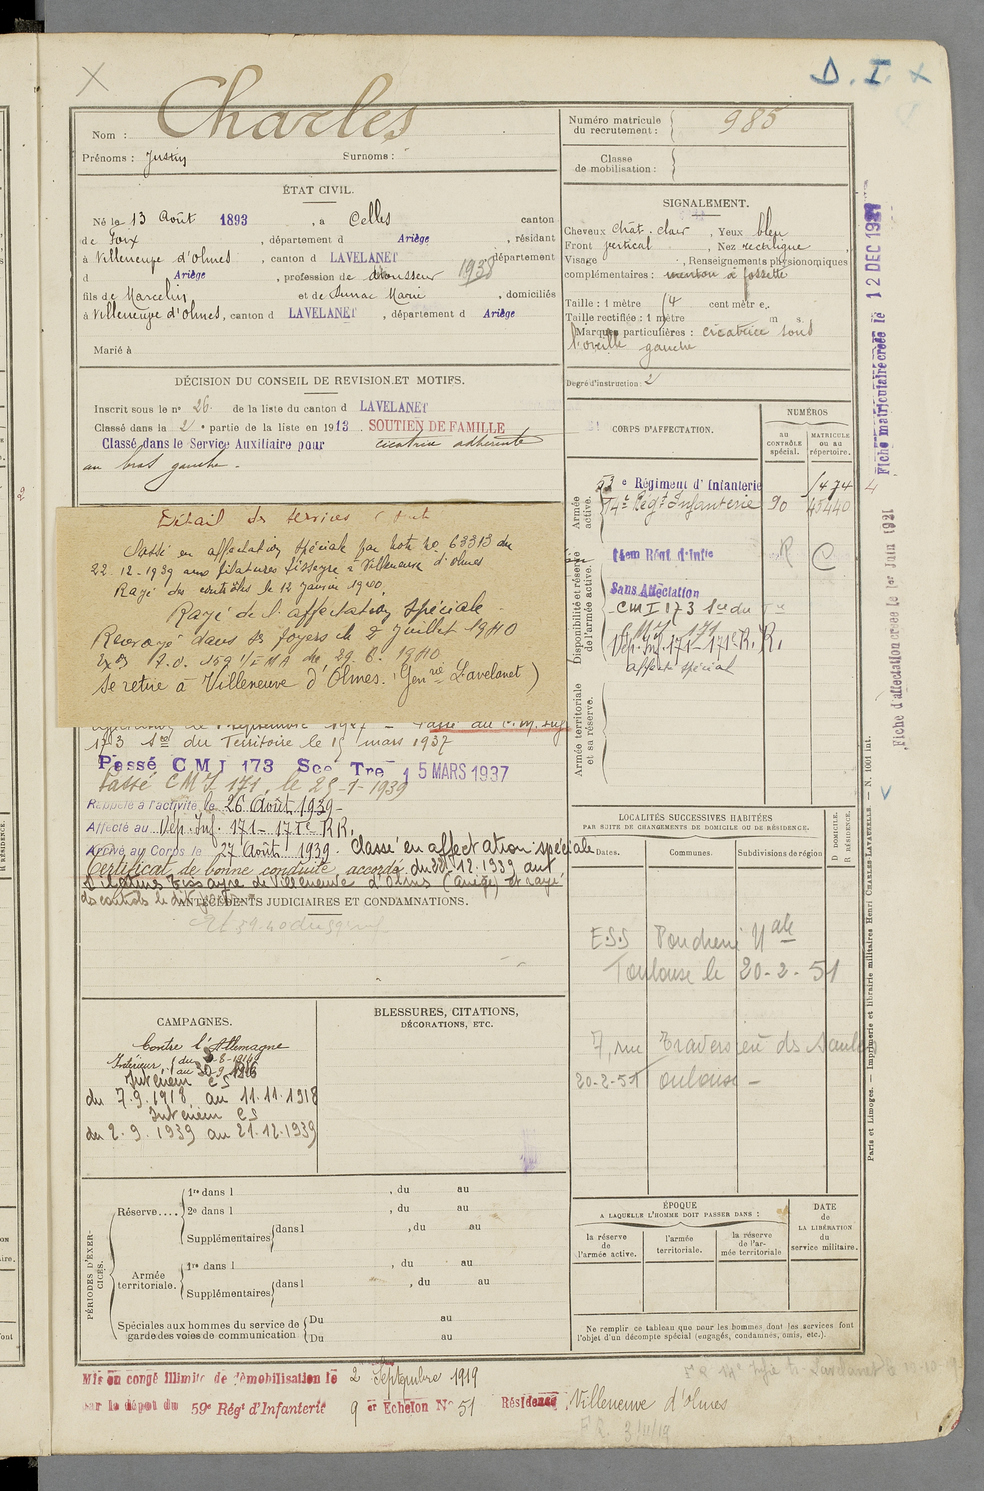 D. I. X
Charles
Nom :
Prénoms : Justin Surnoms :
Numéro matricule du recrutement : 985
Classe de mobilisation :
ÉTAT CIVIL.
Né le 13 Août 1893, à Celles canton
de Foix, département d Ariège, résidant
à Villeneuve d'Olmes, canton d LAVELANET, département
d Ariège, profession de 1938
fils de Marcelin et de Marie, domiciliés
à Villeneuve d'Olmes, canton d LAVELANET, département d Ariège
Marié à
SIGNALEMENT.
Cheveux chât. clair, Yeux bleu
Front vertical, Nez rectiligne
Visage, Renseignements physionomiques
complémentaires : menton à fossette
Taille : 1 mètre 74 cent mètres.
Taille rectifiée : 1 mètre
Marques particulières : cicatrice sous
l'oreille gauche
Degré d'instruction : 2
DÉCISION DU CONSEIL DE REVISION ET MOTIFS.
Inscrit sous le n° 26 de la liste du canton d LAVELANET
Classé dans la 2e partie de la liste en 1913 SOUTIEN DE FAMILLE
Classé dans le Service Auxiliaire pour cicatrice adhérente
au bras gauche.
Détail des services
Classé en affectation spéciale par note no 63313 du
22-12-1939 aux filatures Tissayre à Villeneuve d'Olmes
Rayé des contrôles le 12 Janvier 1940.
Rayé de l'affectation spéciale
Renvoyé dans ses foyers le 2 Juillet 1940
29. 6. 1940
Se retire à Villeneuve d'Olmes. (Gen rie Lavelanet)
173 Son du Territoire le 15 mars 1937
Passé C M I 173 Son Tre 15 MARS 1937
Passé CMI 171, le 25-1-1939
Rappelé à l'activité le 26 Août 1939
Affecté au Dép. Inf. 171 - 171e RR.
Arrivé au Corps le 27 Août 1939. Classé en affectation spéciale
Certificat de bonne conduite accordé du 22.12.1939 aux
filatures Tissayre de Villeneuve d'Olmes (Ariège) et rayé
des contrôles le dit jour
ANTÉCÉDENTS JUDICIAIRES ET CONDAMNATIONS.
CORPS D'AFFECTATION.
NUMÉROS
AU CONTRÔLE spécial.
MATRICULE OU AU répertoire.
Armée active.
e Régiment d'Infanterie 1474
14e Régt Infanterie 90 45440
Disponibilité et réserve de l'armée active.
14em Régt d'Infie R C
Sans Affectation
CMI 173 Son du Tre
Dép. Inf. 171 - 171e R.R.
affecté spécial
Armée territoriale et sa réserve.
LOCALITÉS SUCCESSIVES HABITÉES
PAR SUITE DE CHANGEMENTS DE DOMICILE OU DE RÉSIDENCE.
Dates. Communes. Subdivisions de région D DOMICILE. R RÉSIDENCE.
E.S.S Poudrerie Nale
Toulouse le 20-2-51
7, rue Traversière des Saules
20-2-51 Toulouse
CAMPAGNES.
Contre l'Allemagne
Intérieur,
Intérieur CS
du 7.9.1918 au 11.11.1918
Intérieur CS
du 2.9.1939 au 21.12.1939
BLESSURES, CITATIONS,
DÉCORATIONS, ETC.
PÉRIODES D'EXERCICES.
Réserve....
1re dans l , du au
2e dans l , du au
Supplémentaires dans l , du au
Armée territoriale.
1re dans l , du au
Supplémentaires dans l , du au
Spéciales aux hommes du service de garde des voies de communication
Du au
Du au
ÉPOQUE
A LAQUELLE L'HOMME DOIT PASSER DANS :
la réserve de l'armée active.
l'armée territoriale.
la réserve de l'armée territoriale
DATE DE LA LIBÉRATION du service militaire.
Ne remplir ce tableau que pour les hommes dont les services font
l'objet d'un décompte spécial (engagés, condamnés, omis, etc.).
Mis en congé illimité de démobilisation le 2 Septembre 1919
sur le dépôt du 59e Régt d'Infanterie 9 er Échelon N° 51 Résidence Villeneuve d'Olmes
Fiche matriculaire créée le 12 DEC 1921
Fiche d'affectation créée le 1er Juin 1921
Paris et Limoges. — Imprimerie et librairie militaires Henri CHARLES-LAVAUZELLE. — N. 1001 int.